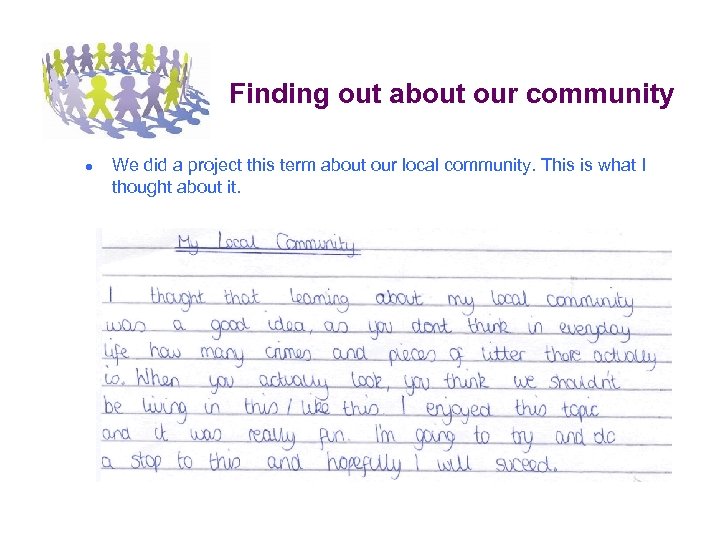 Finding out about our community
We did a project this term about our local community. This is what I
thought about it.
My Local Community
I thought that learning about my local community
was a good idea, as you dont think in everyday
life how many crimes and pieces of litter there actually
is. When you actually look, you think we shouldn't
be living in this / like this. I enjoyed this topic
and it was really fun. I'm going to try and do
a stop to this and hopefully I will suceed.